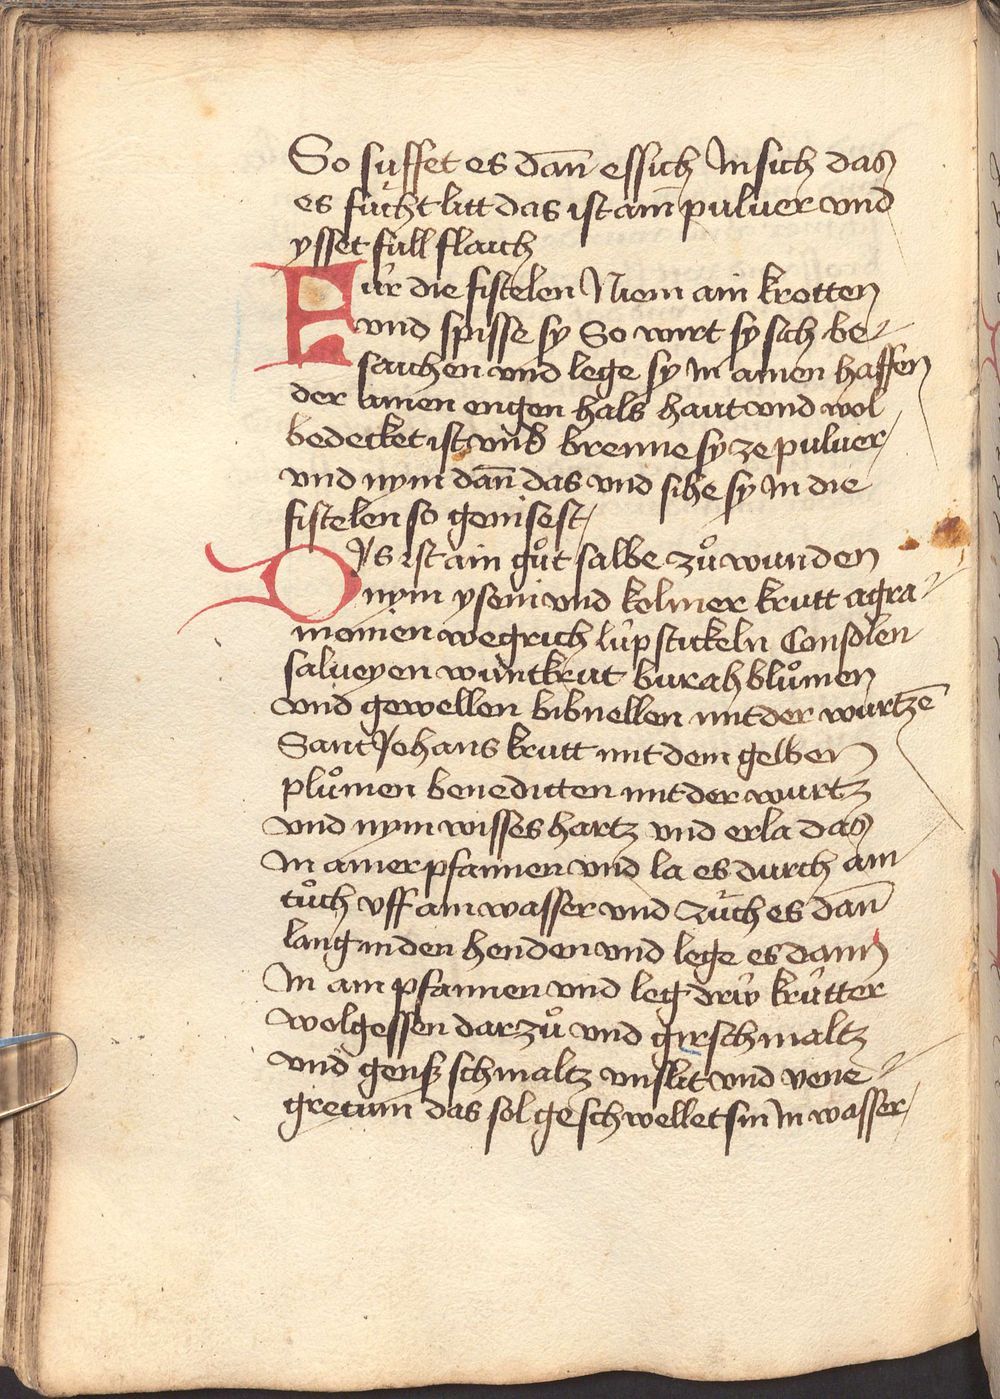 So suͤffet es dañ essich In sich das
es fücht litt das ist ain pulver vnd
ysset full flaich
Für die fistelen Niem ain krotten
vnd spisse sy So wirt sy sich be
saichen vnd lege sy In ainen haffen
der ainen engen hals haut vnd wol
bedecket ist vnd brenne sy ze pulver
vnd nym dañ das vnd sihe sy In die
fistelen so genisest
Dis ist ain guͦt salbe zuͦ wunden
nym yseni vnd kolmer krutt agra
monien wegrich lúpstickeln Consolen
salueyen wuntkrut burah bluͦmen
vnd gewellen bibnellen mit der wurtzē
Sant Johans krutt mit dem gelben
pluͦmen benedicten mit der wurtz
vnd nym wisses hartz vnd erla das
In ainer pfannen vnd la es durch ain
tuͦch vff ain wasser vnd zuch es dañ
lang in den henden vnd lege es dann
In ain pfannen vnd leg driv krútter
wolgessen darzuͦ vnd girschmaltz
vnd gensz schmaltz vnslit vnd vene
grecum das sol geschwellet sin In wasser